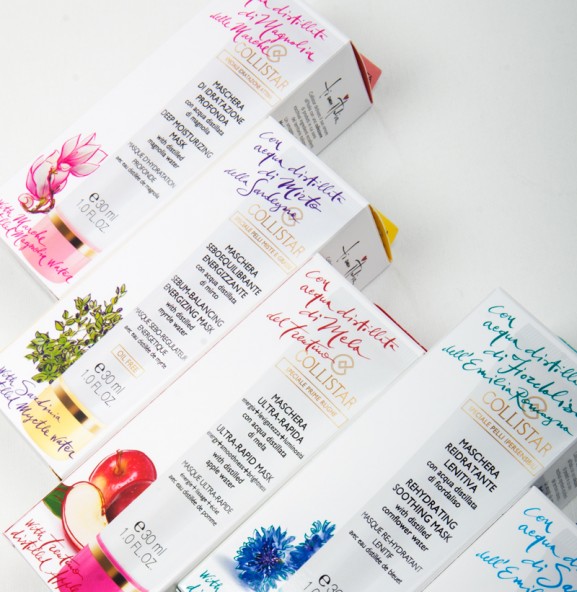 acqua distillata
di Magnolia
delle Marche
COLLISTAR
MASCHERA
DI IDRATAZIONE
PROFONDA
con acqua distillata
di magnolia
DEEP MOISTURIZING
MASK
with distilled
magnolia water
MASQUE D'HYDRATATION
PROFONDE
avec eau distillée de magnolia
e30 ml
1.0 FL.OZ
With Marche
Magnolia Water
Con
acqua distillata
di Mirto
della Sardegna
COLLISTAR
SPECIALE PELLI MISTE E GRASSE
MASCHERA
SEBOEQUILIBRANTE
ENERGIZZANTE
con acqua distillata
di mirto
SEBUM-BALANCING
ENERGIZING MASK
with distilled
myrtle water
MASQUE SÉBO-RÉGULATEUR
ENERGÉTIQUE
avec eau distillée de myrte
OIL FREE
e30 ml
1.0 FL.OZ
With Sardinia
Myrtle Water
Con
acqua distillata
di Mela
del Trentino
COLLISTAR
SPECIALE PRIME RUGHE
MASCHERA
ULTRA-RAPIDA
energia+levigatezza+luminosità
con acqua distillata
di mela
ULTRA-RAPID MASK
energy+smoothness+brightness
with distilled
apple water
MASQUE ULTRA RAPIDE
énergie + lissage + éclat
avec eau distillée de pomme
e30 ml
1.0 FL.OZ
With Trentino
distilled Apple
Con
acqua distillata
di Fiordaliso
dell'Emilia Romagna
COLLISTAR
SPECIALE PELLI IPERSENSIBILI
MASCHERA
REIDRATANTE
LENITIVA
con acqua distillata
di fiordaliso
REHYDRATING
SOOTHING MASK
with distilled
cornflower water
MASQUE RE-HYDRATANT
LENITIF
avec eau distillée de bleuet
Con
acqua
di
dell'E